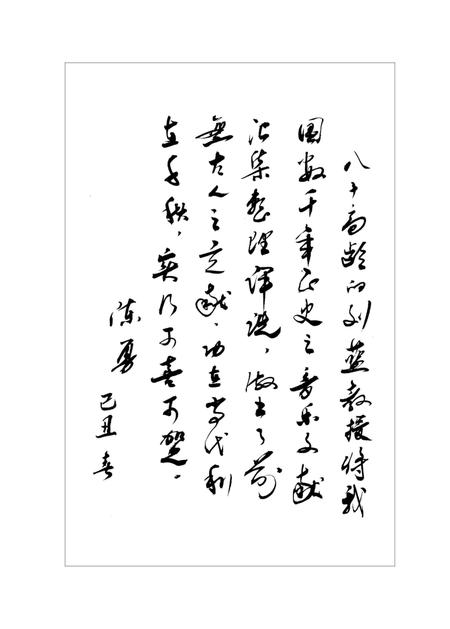 八十高龄的刘蓝教授将我
國数千年正史之音乐文献
汇集整理，做出了前
無古人之贡献，功在当代利
在千秋，实乃可喜可贺。
陈勇
己丑春